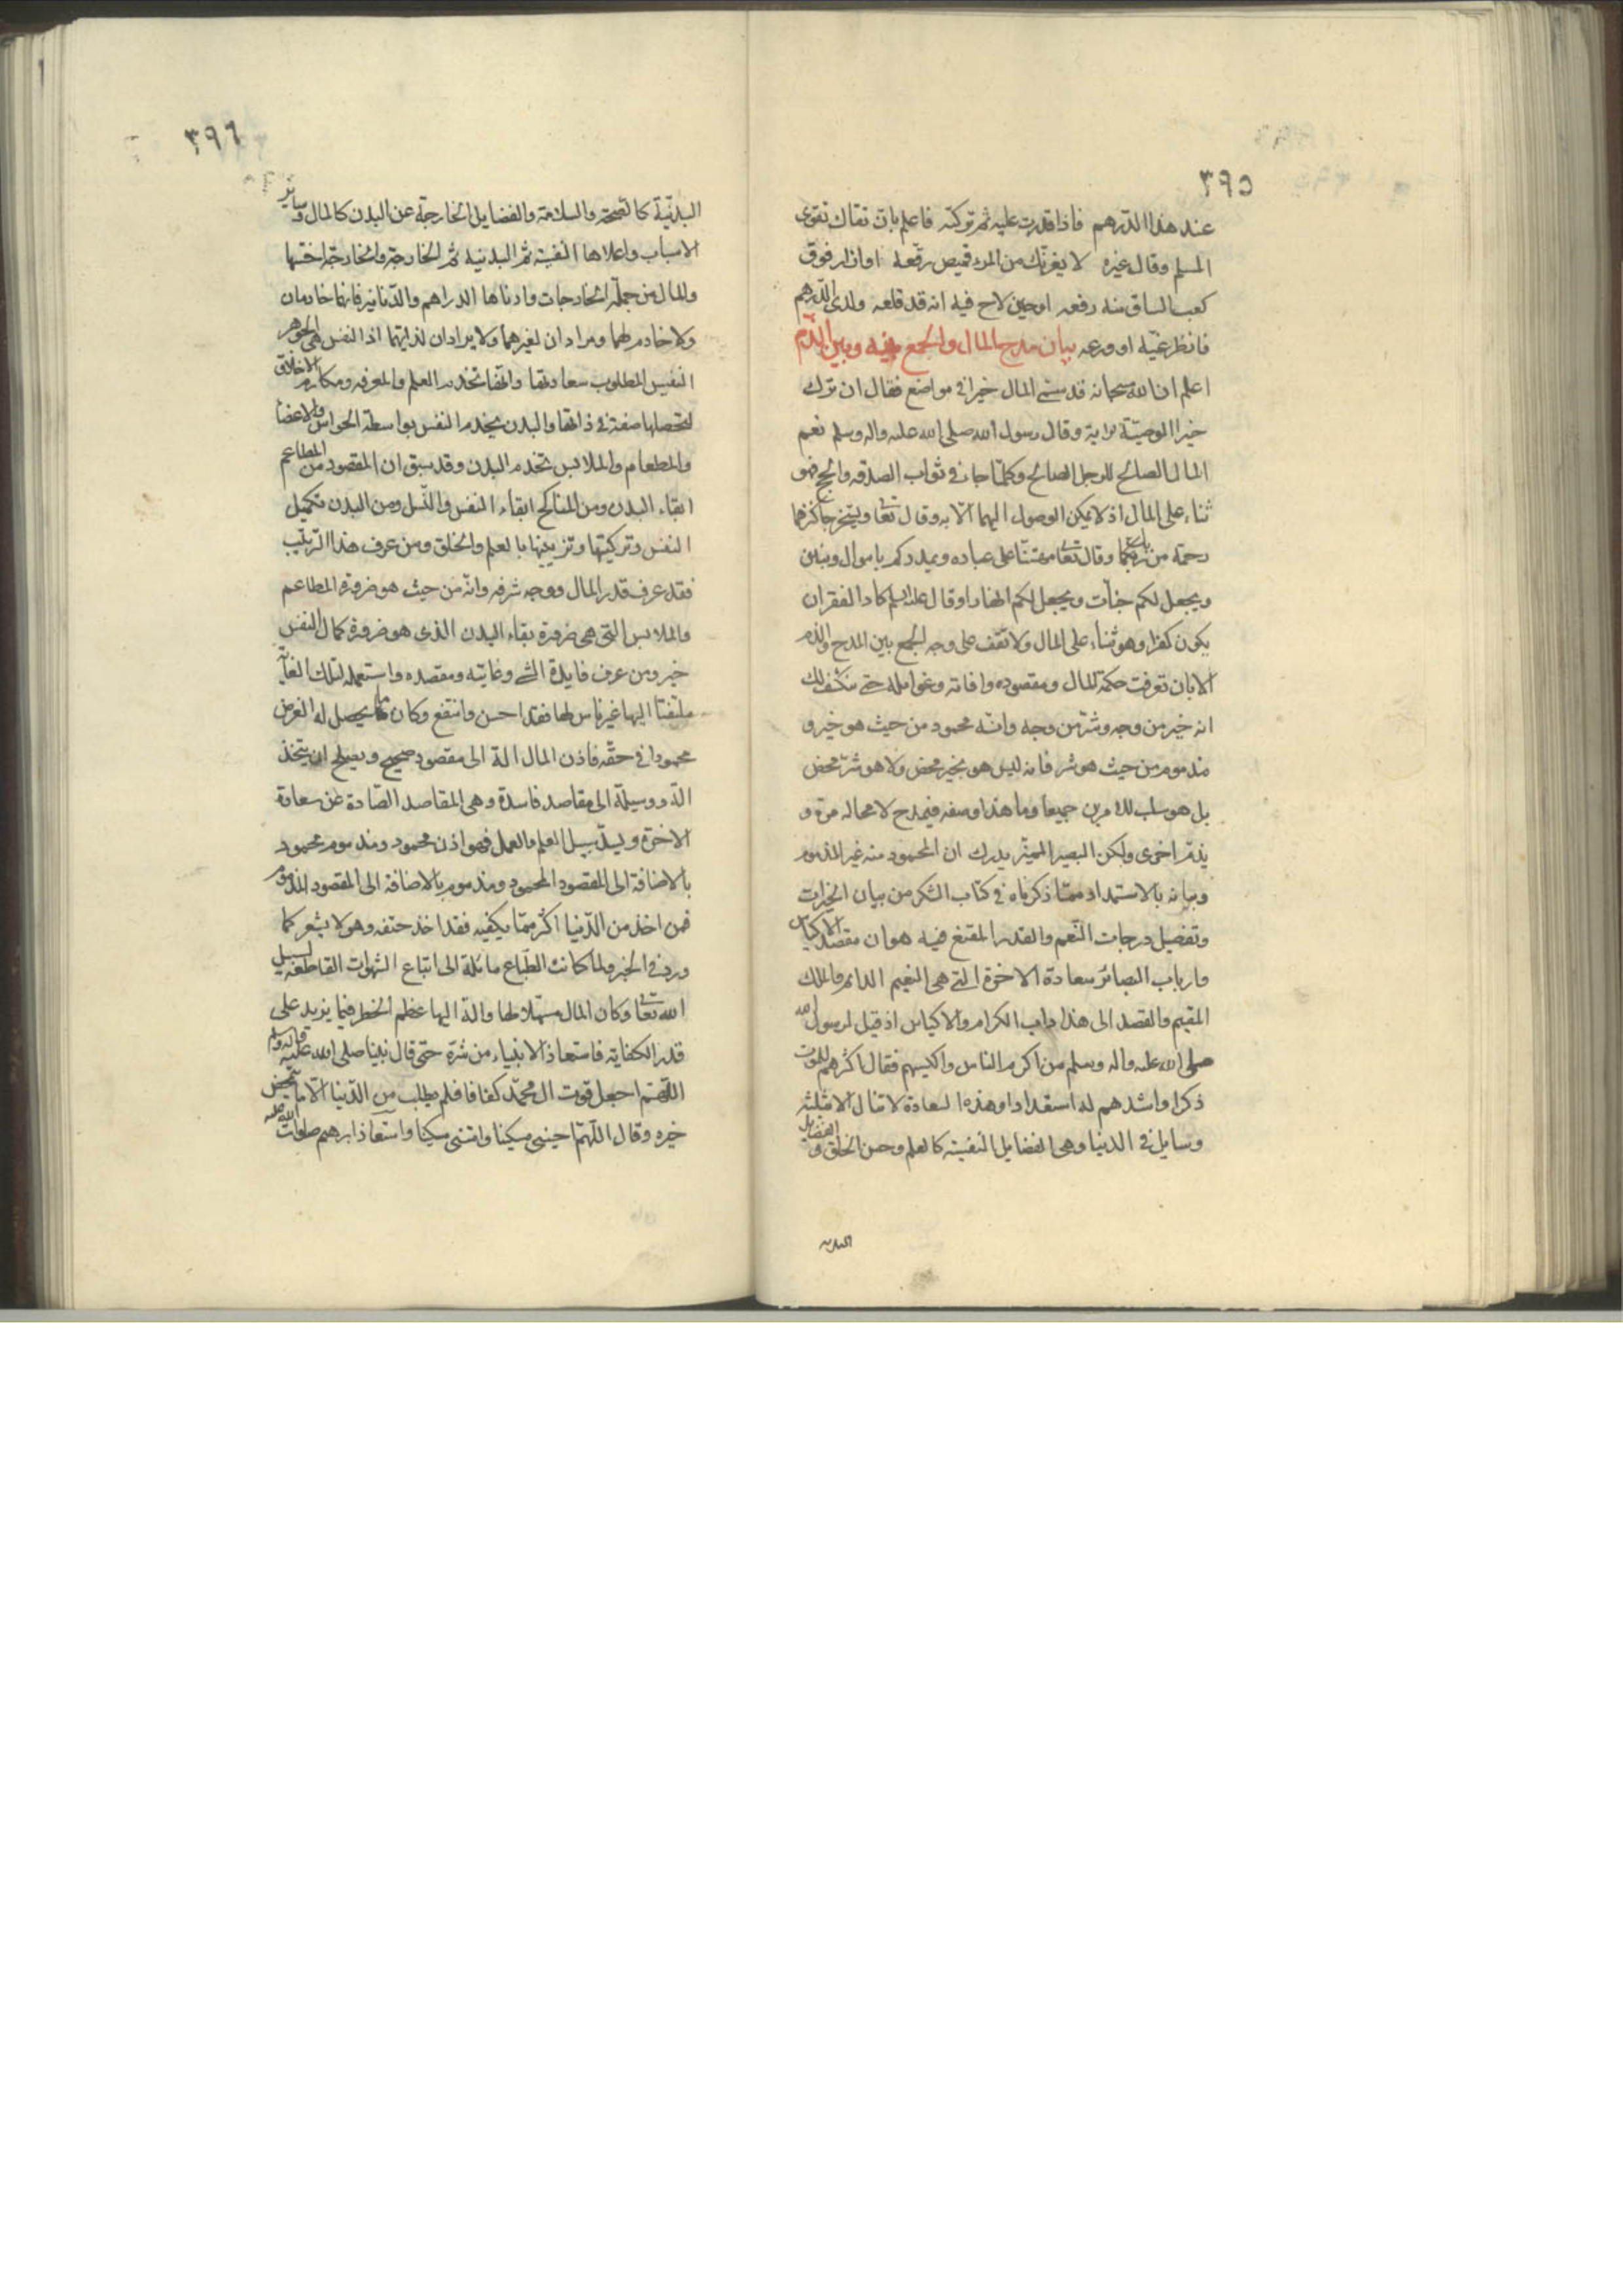 ٣٩٥
عند هذا الدّرهم فاذا قدرت عليه ثم تركته فاعلم بان تقاك تقوى
المسلم وقال غيره لا يغرنّك من المرء قميص رقعه او ازار فوق
كعب الساق منه رفعه او جبين لاح فيه اثر قد قلعه ولدى الدّرهم
فانظر غيّه او ورعه بيان مدح المال والجمع بينه وبين الذم
اعلم ان الله سبحانه قد سمّى المال خيرا في مواضع فقال ان ترك
خيرا الوصيّة الاية وقال رسول الله صلى الله عليه واله وسلم نعم
المال الصالح للرجل الصالح وكلما جاء في ثواب الصدقه والحج فهو
ثناء على المال اذ لا يمكن الوصول اليهما الّا به وقال تعا ويستخرجا كنزهما
رحمة من ربك وقال تعا ممتنّا على عباده ويمددكم باموال وبنين
ويجعل لكم جنّات ويجعل لكم انهارا وقال عليه السلم كاد الفقر ان
يكون كفرا وهو ثناء على المال ولا تقف على وجه الجمع بين المدح والذم
الا بان تعرف حكمة المال ومقصوده وافاته وغوائله حتى ينكشف لك
انه خير من وجه وشرّ من وجه وانّه محمود من حيث هو خير و
مذموم من حيث هو شر فانه ليس هو بخير محض ولا هو شرّ محض
بل هو سبب للامرين جميعا وما هذا وصفه فيمدح لا محاله مرة و
يذمّ اخرى ولكن البصير المميّز يدرك ان المحمود منه غير المذموم
وبيانه بالاستمداد ممّا ذكرناه في كتاب الشكر من بيان الخيرات
وتفصيل درجات النّعم والقدر المقنع فيه هو ان مقصد الاكياس
وارباب البصائر سعادة الاخرة التي هى النعيم الدائم والملك
المقيم والقصد الى هذا داب الكرام والاكياس اذ قيل لرسول الله
صلى الله عليه واله وسلم من اكرم الناس واكيسهم فقال اكثرهم للموت
ذكرا واشدهم له استعدادا وهذه السعادة لا تنال الا بثلث
وسايل في الدنيا وهى الفضايل النفسيّة كالعلم وحسن الخلق و الفضايل
البدنيه
٣٩٦
البدنيّة كالصحّة والسلامة والفضايل الخارجة عن البدن كالمال وساير
الاسباب واعلاها النفسيّة ثمّ البدنيه ثمّ الخارجة والخارجة اخسّها
والمال من جملة الخارجات وادناها الدراهم والدّنانير فانها خادمان
ولا خادم لهما ومرادان لغيرهما ولا يرادان لذاتهما اذ النفس هى الجوهر
النفيس المطلوب سعادتها وانّها تخدم العلم والمعرفه ومكارم الاخلاق
لتحصلها صفة في ذاتها والبدن يخدم النفس بواسطة الحواس والاعضا
والمطعام والملابس تخدم البدن وقد سبق ان المقصود من المطاعم
ابقاء البدن ومن المناكح ابقاء النفس والنّسل ومن البدن تكميل
النفس وتزكيتها وتزيينها بالعلم والخلق ومن عرف هذا الترتيب
فقد عرف قدر المال ووجه شرفه وانّه من حيث هو ضرورة المطاعم
والملابس التي هى ضرورة بقاء البدن الذى هو ضرورة كمال النفس
خير ومن عرف فايدة الشى وغايته ومقصده واستعمله لتلك الغاية
ملتفتا اليها غير ناس لها فقد احسن وانتفع وكان ما يحصل له الغرض
محمودا في حقّه فاذن المال الة الى مقصود صحيح ويصلح ان يتخذ
الة ووسيلة الى مقاصد فاسدة وهى المقاصد الصّادة عن سعادة
الاخرة ويسدّ سبيل العلم والعمل فهو اذن محمود ومذموم محمود
بالاضافة الى المقصود المحمود ومذموم بالاضافة الى المقصود المذموم
فمن اخذ من الدّنيا اكثر ممّا يكفيه فقد اخذ حتفه وهو لا يشعر كما
ورد في الخبر ولما كانت الطّباع مائلة الى اتباع الشهوات القاطعة لسبيل
الله تعا وكان المال مسهّلا لها والة اليها عظم الخطر فيما يزيد على
قدر الكفاية فاستعاذ الانبياء من شرّه حتى قال نبينا صلى الله عليه واله وسلم
اللّهمّ اجعل قوت ال محمّد كفافا فلم يطلب من الدّنيا الّا ما يتمحض
خيره وقال اللّهمّ احيني مسكينا وامتنى مسكينا واستعاذ ابرهيم صلوات الله عليه